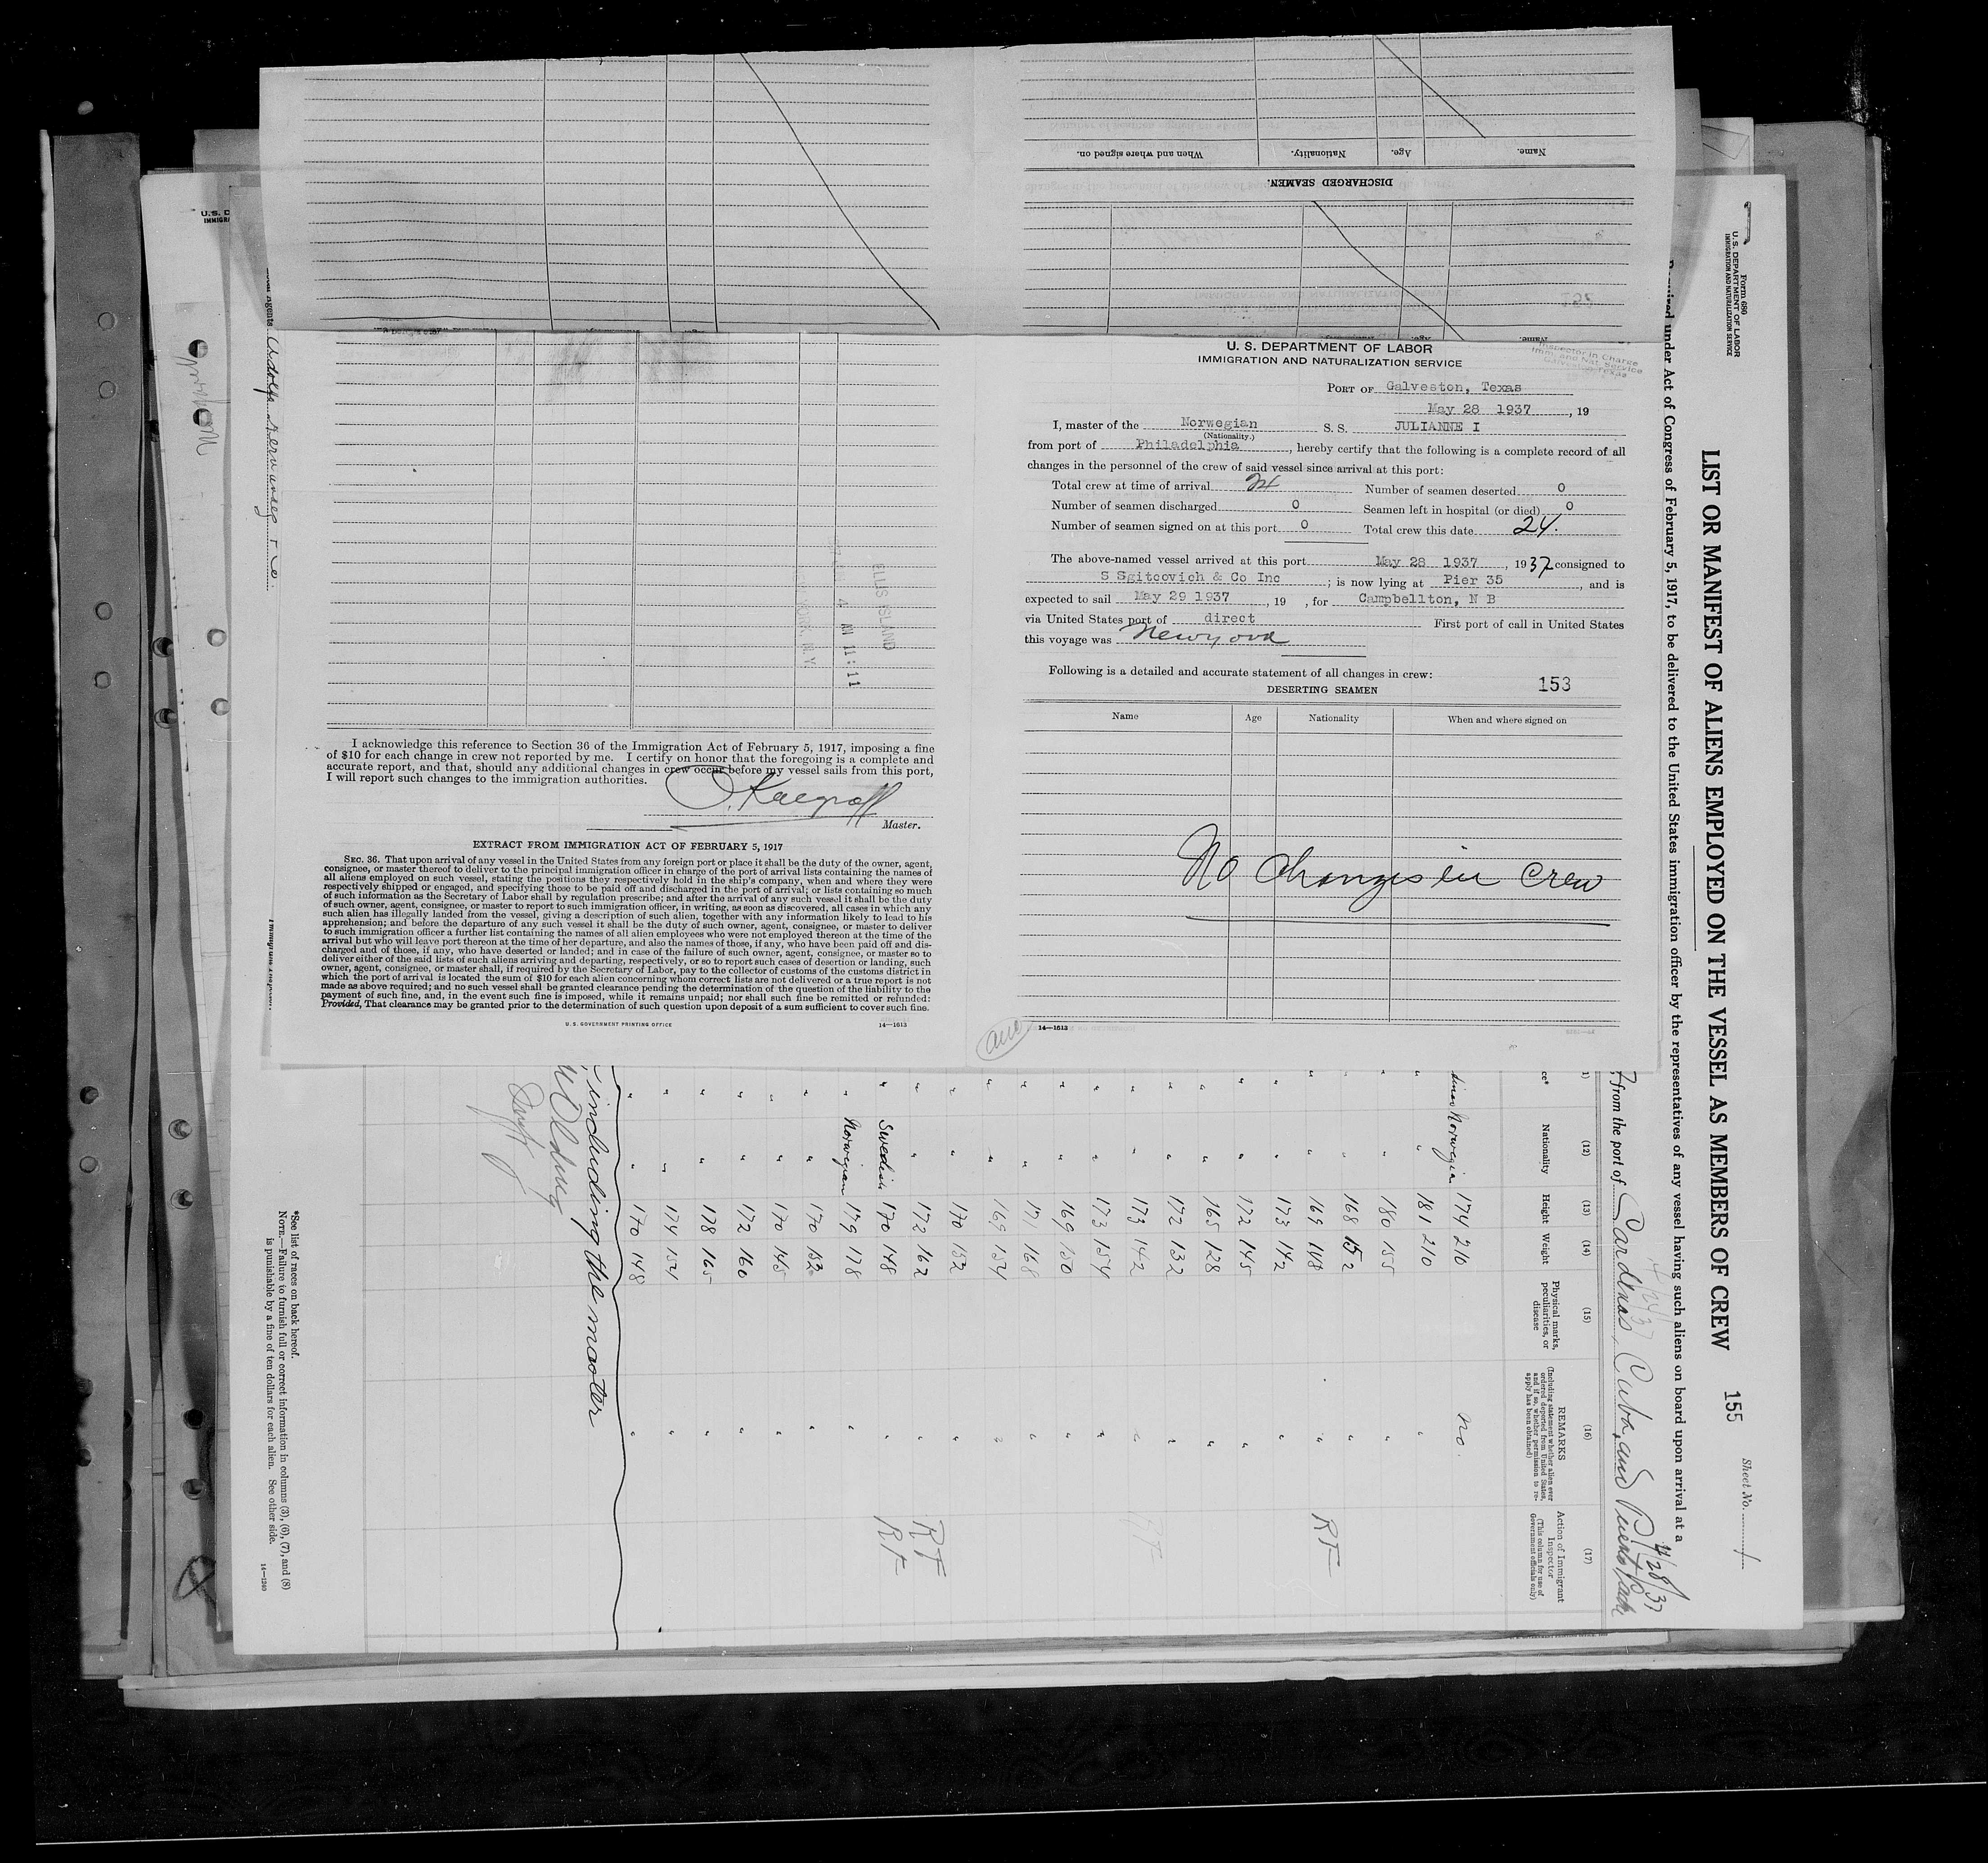 Name. Age. Nationality. When and where signed on.
DISCHARGED SEAMEN.
U. S. DEPARTMENT OF LABOR
IMMIGRATION AND NATURALIZATION SERVICE
Inspector in Charge
Imm. and Nat. Service
Galveston, Texas
PORT OF Galveston, Texas
May 28 1937, 19
I, master of the Norwegian S. S. JULIANNE I
(Nationality.)
from port of Philadelphia, hereby certify that the following is a complete record of all
changes in the personnel of the crew of said vessel since arrival at this port:
Total crew at time of arrival 24 Number of seamen deserted 0
Number of seamen discharged 0 Seamen left in hospital (or died) 0
Number of seamen signed on at this port 0 Total crew this date 24.
The above-named vessel arrived at this port May 28 1937, 1937 consigned to
S Sgitcovich & Co Inc; is now lying at Pier 35, and is
expected to sail May 29 1937, 19 , for Campbellton, N B
via United States port of direct First port of call in United States
this voyage was
Following is a detailed and accurate statement of all changes in crew:
DESERTING SEAMEN 153
Name Age Nationality When and where signed on
No Changes in Crew
14—1613
ELLUS ISLAND
4 AM 11:11
I acknowledge this reference to Section 36 of the Immigration Act of February 5, 1917, imposing a fine
of $10 for each change in crew not reported by me. I certify on honor that the foregoing is a complete and
accurate report, and that, should any additional changes in crew occur before my vessel sails from this port,
I will report such changes to the immigration authorities.
Master.
EXTRACT FROM IMMIGRATION ACT OF FEBRUARY 5, 1917
SEC. 36. That upon arrival of any vessel in the United States from any foreign port or place it shall be the duty of the owner, agent,
consignee, or master thereof to deliver to the principal immigration officer in charge of the port of arrival lists containing the names of
all aliens employed on such vessel, stating the positions they respectively hold in the ship's company, when and where they were
respectively shipped or engaged, and specifying those to be paid off and discharged in the port of arrival; or lists containing so much
of such information as the Secretary of Labor shall by regulation prescribe; and after the arrival of any such vessel it shall be the duty
of such owner, agent, consignee, or master to report to such immigration officer, in writing, as soon as discovered, all cases in which any
such alien has illegally landed from the vessel, giving a description of such alien, together with any information likely to lead to his
apprehension; and before the departure of any such vessel it shall be the duty of such owner, agent, consignee, or master to deliver
to such immigration officer a further list containing the names of all alien employees who were not employed thereon at the time of the
arrival but who will leave port thereon at the time of her departure, and also the names of those, if any, who have been paid off and dis-
charged and of those, if any, who have deserted or landed; and in case of the failure of such owner, agent, consignee, or master so to
deliver either of the said lists of such aliens arriving and departing, respectively, or so to report such cases of desertion or landing, such
owner, agent, consignee, or master shall, if required by the Secretary of Labor, pay to the collector of customs of the customs district in
which the port of arrival is located the sum of $10 for each alien concerning whom correct lists are not delivered or a true report is not
made as above required; and no such vessel shall be granted clearance pending the determination of the question of the liability to the
payment of such fine, and, in the event such fine is imposed, while it remains unpaid; nor shall such fine be remitted or refunded:
Provided, That clearance may be granted prior to the determination of such question upon deposit of a sum sufficient to cover such fine.
U. S. GOVERNMENT PRINTING OFFICE 14—1613
Form 689
U. S. DEPARTMENT OF LABOR
IMMIGRATION AND NATURALIZATION SERVICE
LIST OR MANIFEST OF ALIENS EMPLOYED ON THE VESSEL AS MEMBERS OF CREW
155
Sheet No. 1
Required under Act of Congress of February 5, 1917, to be delivered to the United States immigration officer by the representatives of any vessel having such aliens on board upon arrival at a
4/28/37
from the port of Cardenas, Cuba, and Puerto Padre
(12) (13) (14) (15) (16) (17)
Nationality Height Weight
Physical marks, peculiarities, or disease
REMARKS
(Including statement whether alien ever ordered deported from United States, and if so, whether permission to reapply has been obtained)
Action of Immigrant Inspector
(This column for use of Government officials only)
Norwegian 174 210 no.
" 181 210 "
" 180 155 "
" 168 152 "
" 169 148 " RF
" 173 142 "
" 172 145 "
" 165 128 "
" 172 132 "
" 173 142 " RF
" 173 154 "
" 169 150 "
" 171 168 "
" 169 154 "
" 170 152 "
" 172 162 " RF
Swedish 170 148 " RF
Norwegian 179 178 "
" 170 152 "
" 170 145 "
" 172 160 "
" 178 165 "
" 174 154 "
" 170 148 "
including the master
*See list of races on back hereof.
NOTE.—Failure to furnish full or correct information in columns (3), (6), (7), and (8)
is punishable by a fine of ten dollars for each alien. See other side.
14—1240